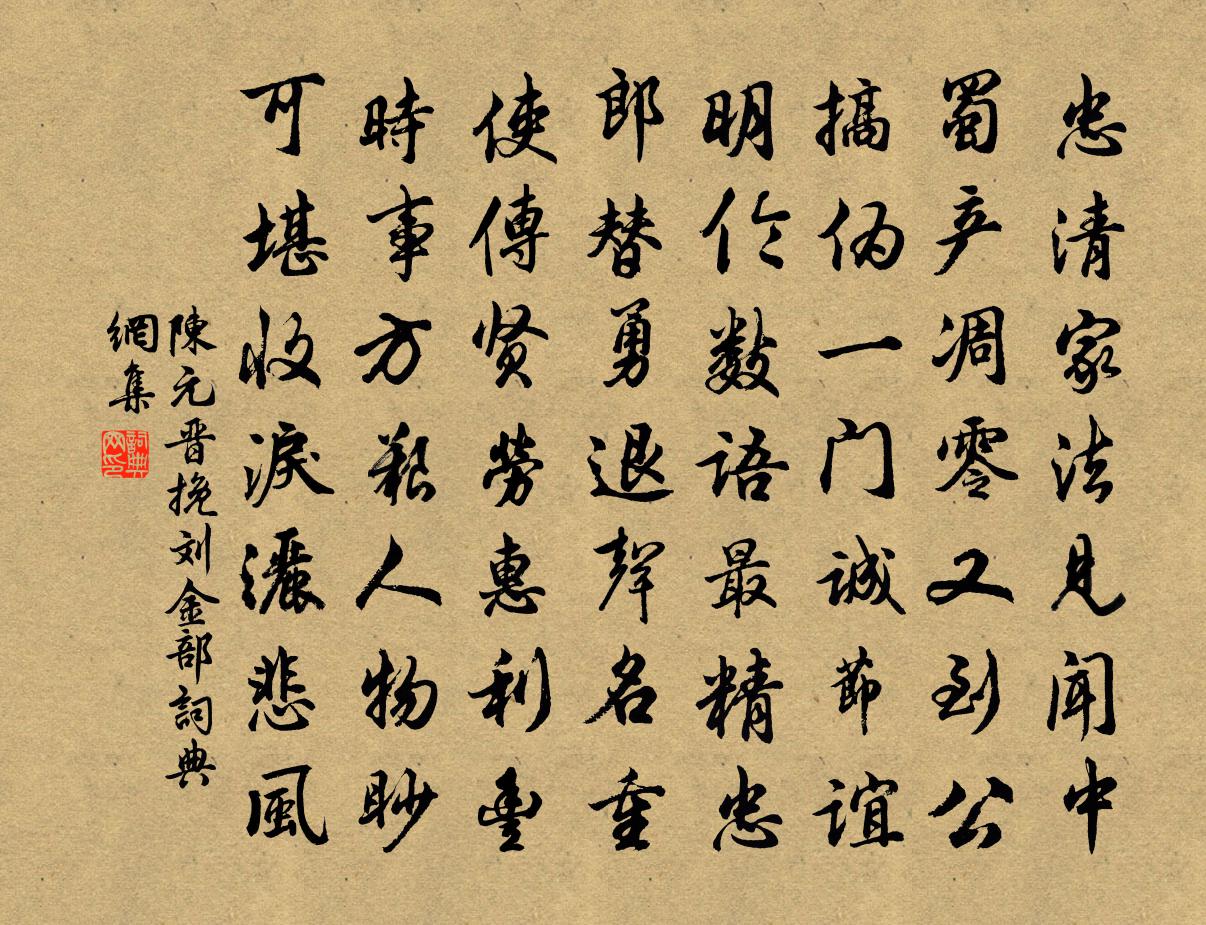 忠清家法見闻中
蜀产凋零又到公
搞伪一门誠節誼
明伦数语最精忠
郎替勇退聲名重
使傳贤勞惠利豐
時事方艱人物眇
可堪收淚灑悲風
陳元晋挽刘金部詞典
網集
詞典
网印